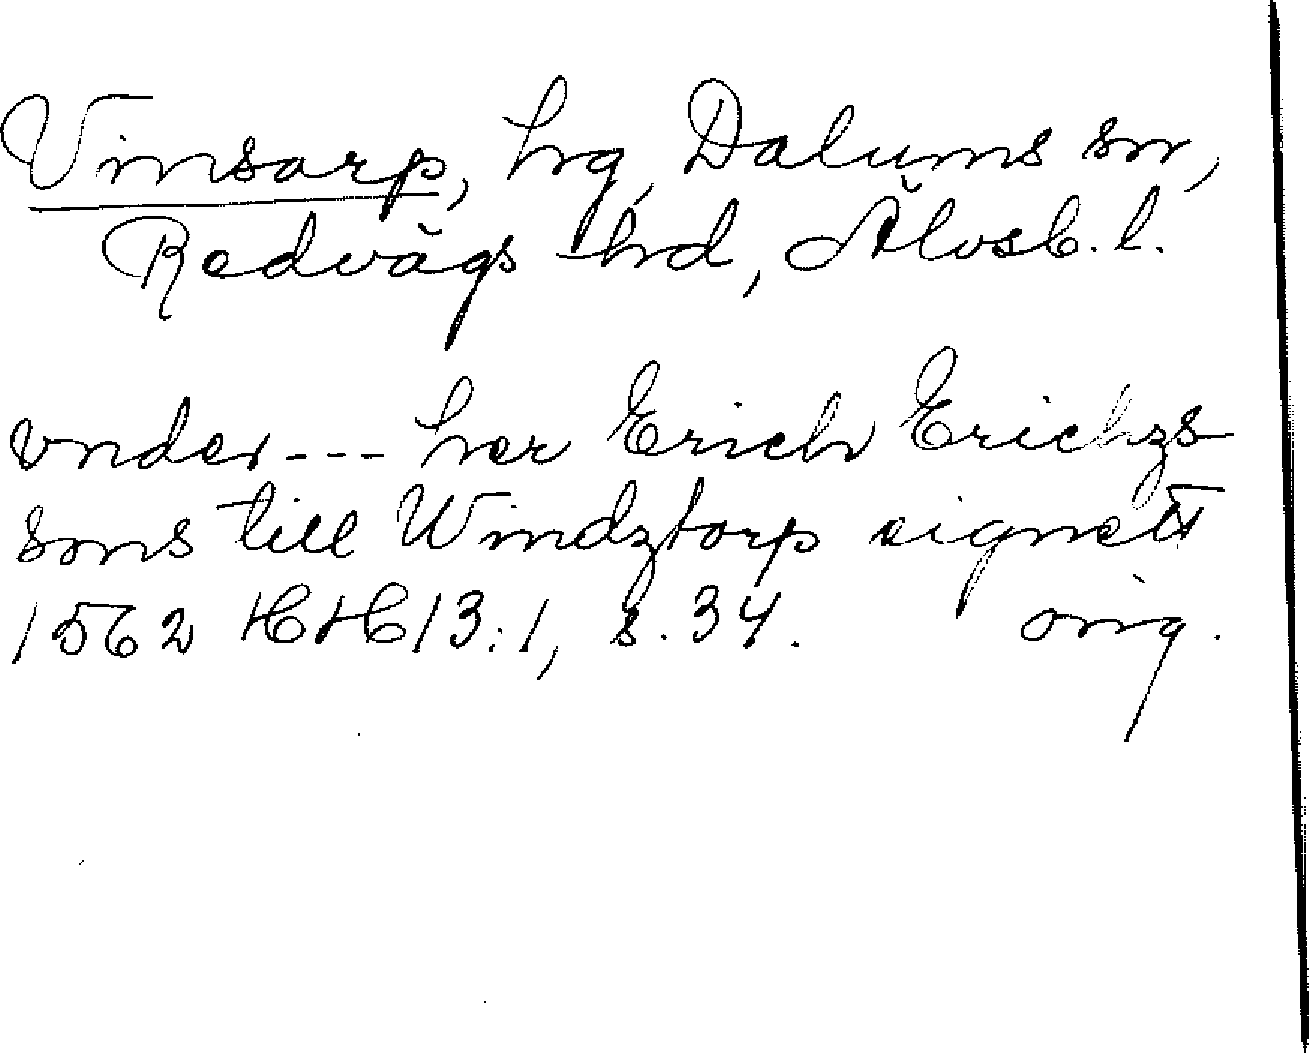 Vinsarp, hrg, Dalums sn,
Redvägs hrd, Älvsb. l.
vnder --- her Erich Erichzs
sons till Windztorp signett
1562 HH 13:1, s. 34. orig.